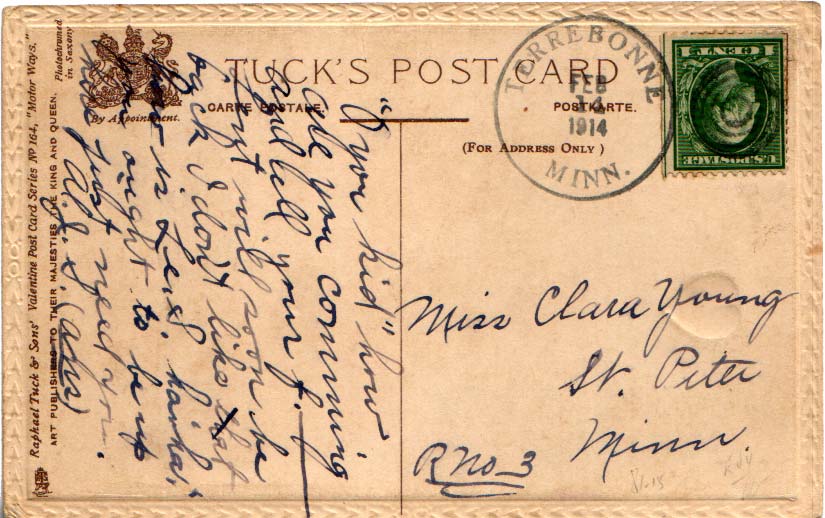 TUCK'S POST CARD
CARTE POSTALE.
POSTKARTE.
(FOR ADDRESS ONLY)
By Appointment.
Photochromed
in Saxony
Raphael Tuck & Sons' Valentine Post Card Series Nº 164, "Motor Ways."
ART PUBLISHERS TO THEIR MAJESTIES THE KING AND QUEEN.
TERREBONNE
FEB
1914
MINN.
1 CENT 1
U.S. POSTAGE
"O you kid" how
are you comming
and tell your f.
that will soon be
back I don't like
is
ought to be up
just need you.
Miss Clara Young
St. Peter
Minn.
R No 3